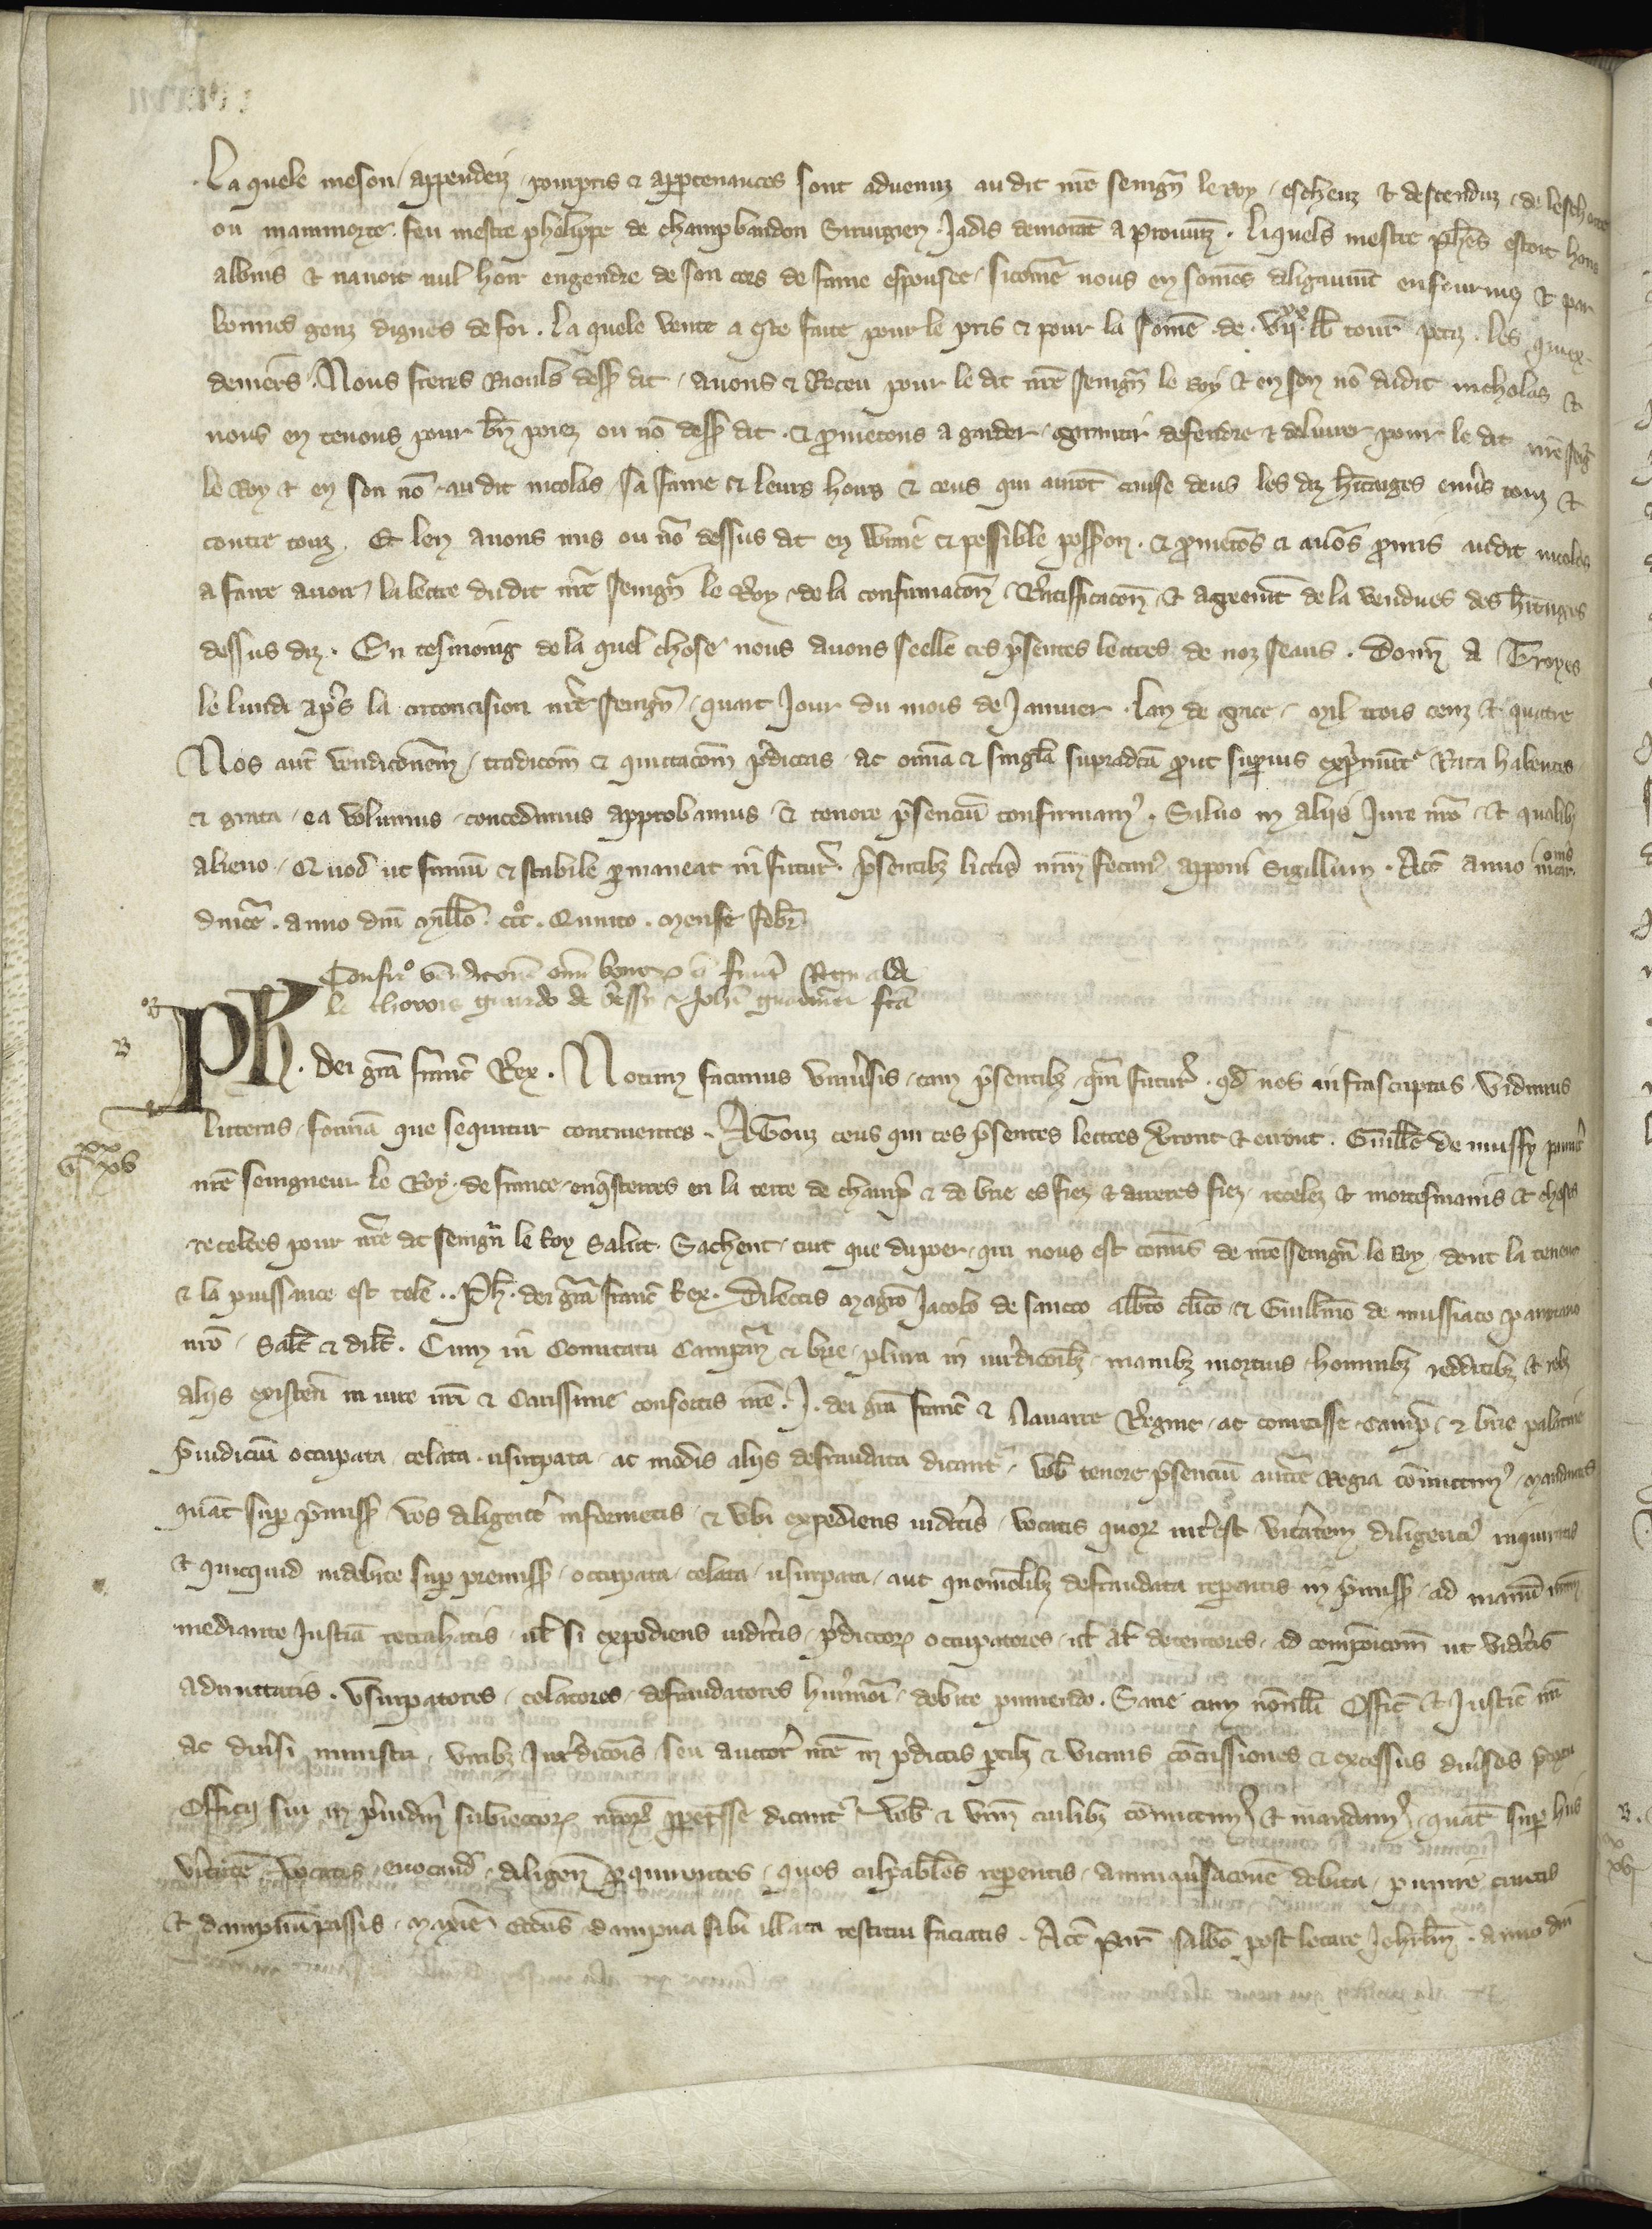 La quele meson appendeiz pourpris et apptenances sont advenuz au dit nre seingn le Roy escheuz et descenduz de leschoite
ou mainmorte feu mestre phelippe de champbaudon Sirurgien Jadis demorat a prouuiz. Liquels mestre phes estoit hons
albins et nauoit nul hoir engendre de son cors de fame espousee sicome nous en somes diligaument enfourmez et par
bonnes genz dignes de foi. La quele vente a este faite pour le pris et pour la some de. vijxx. lb tour petiz. les quiex
deniers Nous freres Raouls dess dit auons et Receu pour le dit nre seingn le Roy et en son no dudit nicholas et
nous en tenons pour bn poiez ou no dess dit et pmetons a garder garantir defendre et deliurer pour le dit nre seig
le Roy et en son no au dit nicolas sa fame et leurs hoirs et ceus qui auront cause deus les diz hitaiges enuers touz et
contre touz. Et len auons mis ou no dessus dit en vraie et pessible possion. et pmetos et auos pmis audit nicolas
a faire auoir la lettre dudit nre seingn le Roy de la confirmacon Ratifficacon et agreemt de la vendues des hitaiges
dessus diz. En tesmoing de la quel chose nous auons seelle ces psentes lettres de noz seaus. Donn A Troyes
le lundi aps la circoncision nre seingn quart Jour du mois de Januier. lan de grace mil trois cenz et quatre
Nos aut vendiconem tradicom et quittacom pdictas ac omia et singla supradca put supius exprimunt Rata habentes
et grata ea volumus concedimus approbamus et tenore psenciu confirmam. Saluo in aliis Jure nro et qualib
alieno. Quod ut firmu et stabile pmaneat in futur. psentib littis nrm fecim apponi Sigillum. Act anno incar
onis
dnice. anno dni Millo. ccco. Quinto. mense febr
Confir vendiconis oim bonor
la choroie girardo de
Ph. dei gra franc Rex. Notum facimus vniusis tam psentib qm futur. qd nos infrascriptas vidimus
litteras formam que sequitur continentes. A Touz ceus qui ces psentes lettres verront et orront. Guille de mussy panetr
nre seingneur le Roy de france enquesterres en la terre de champ et de brie es fiez et arreres fiez recelez et mortesmains et choses
recelees pour nre dit seingn le Roy Salut. Sachent tuit que du poer qui nous est comis de nre seingn le Roy dont la teneur
et la puissance est tele.. Ph. dei gra franc Rex. Dilectis magro Jacobo de sancto albto clico et Guillmo de mussiaco panetario
nro Salt et dilt. Cum in Comitatu Campan et brie plura in iurdiconib manib mortuis hominib redditib et reb
aliis existen in iure nri et Carissime consortis nre. J. dei gra franc et Nauarre Regine ac comitisse Camp et brie palatine
piudiciu occupata celata usurpata ac modis aliis defraudata dicant vob tenore psenciu auctte Regia comittim mandantes
quat sup pmiss vos diligent informetis et vbi expediens uiditis vocatis quor intest uitatem diligenci inquiratis
et quicquid indebite sup premiss occupata celata usurpata aut quomolib defraudata repitis in pmiss ad manu nram
mediante Justia retrahatis ul si expediens uiditis pdictor occupatores ul al detentores ad compoicom ut viditis
admittatis. vsurpatores celatores defraudatores huiusmoi debite puniendo. Sane cum nonnlli Offic et Justic nri
ac diusi ministri vtrib Jurdicois seu auctor nre in pdictis ptib et vicinis concussiones et excessus diuisos pextu
Officij sui in piudm subiector nror ppetsse dicant vob et vrm cuilib comittim et mandam quat sup hiis
uitate vocatis euocand diligen pquirentes quos culpabiles repitis animaduisacone debita punire curetis
et dampnu passis dampna sibi illata restitui faciatis. Act Par sabbo post letare Jherlm. anno dni